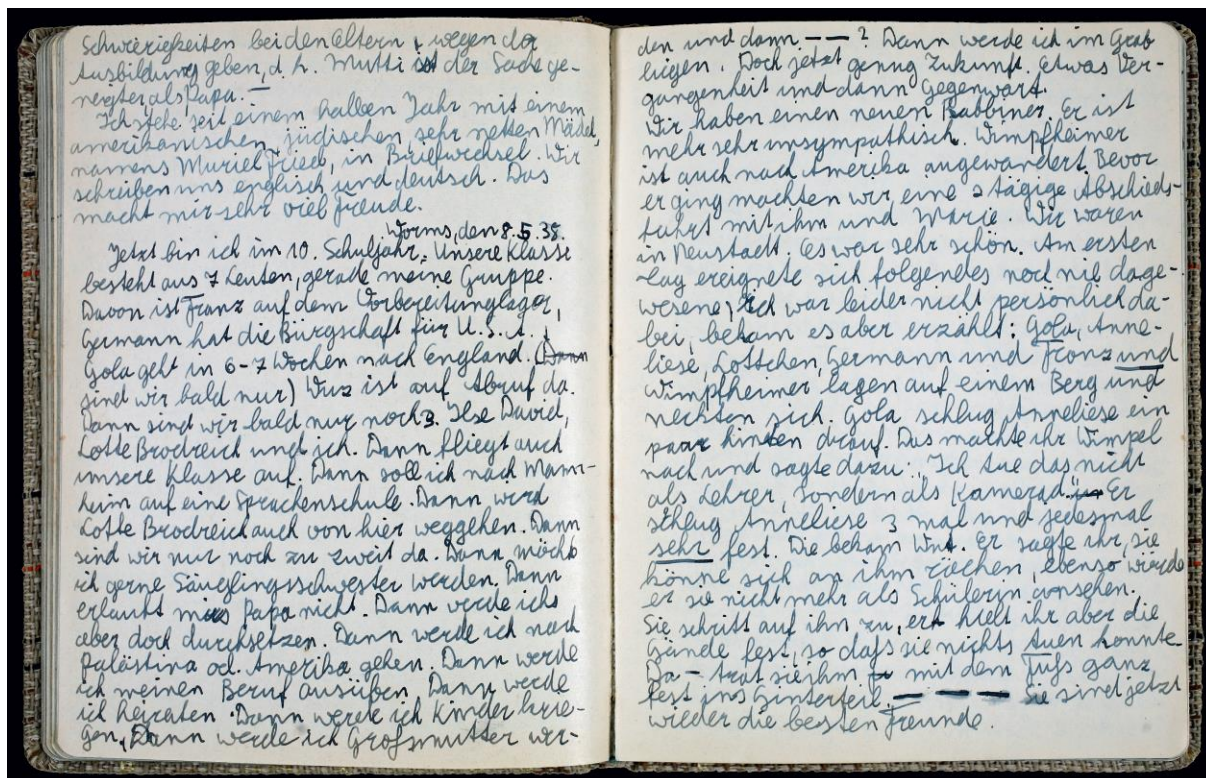 Schwierigkeiten bei den Eltern, wegen der
Ausbildung geben, d. h. Mutti ist der Sache ge-
neigter als Papa. —
Ich stehe seit einem halben Jahr mit einem
amerikanischen, jüdischen sehr netten Mädel,
namens Muriel Fried, in Briefwechsel. Wir
schreiben uns englisch und deutsch. Das
macht mir sehr viel Freude.
Worms, den 8.5.38.
Jetzt bin ich im 10. Schuljahr. Unsere Klasse
besteht aus 7 Leuten, gerade meine Gruppe.
Davon ist Franz auf dem Vorbereitunglager,
Germann hat die Bürgschaft für U.S.A.
Gola geht in 6-7 Wochen nach England. (Dann
sind wir bald nur) Wuz ist auf Abruf da.
Dann sind wir bald nur noch 3. Ilse David,
Lotte Brodreich und ich. Dann fliegt auch
unsere Klasse auf. Dann soll ich nach Mann-
heim auf eine Sprachenschule. Dann wird
Lotte Brodreich auch von hier weggehen. Dann
sind wir nur noch zu zweit da. Dann möcht
ich gerne Säuglingsschwester werden. Dann
erlaubt mirs Papa nicht. Dann werde ichs
aber doch durchsetzen. Dann werde ich nach
Palästina od. Amerika gehen. Dann werde
ich meinen Beruf ausüben, Dann werde
ich heiraten. Dann werde ich Kinder krie-
gen, Dann werde ich Grofsmutter wer-
den und dann — — ? Dann werde ich im Grab
liegen. Doch jetzt genug Zukunft. Etwas Ver-
gangenheit und dann Gegenwart.
Wir haben einen neuen Rabbiner. Er ist
mehr sehr unsympathisch. Wimpfheimer
ist auch nach Amerika ausgewandert. Bevor
er ging machten wir eine 2 tägige Abschieds-
fahrt mit ihm und Marie. Wir waren
in Neustadt. Es war sehr schön. Am ersten
Tag ereignete sich folgendes noch nie dage-
wesene; Ich war leider nicht persönlich da-
bei, bekam es aber erzählt: Gola, Anne-
liese, Lottchen, Germann und Franz und
Wimpfheimer lagen auf einem Berg und
neckten sich. Gola schlug Anneliese ein
paar hinten drauf. Das machte ihr Wimpel
nach und sagte dazu: „Ich tue das nicht
als Lehrer, sondern als Kamerad." Er
schlug Anneliese 3 mal und jedesmal
sehr fest. Die bekam Wut. Er sagte ihr, sie
könne sich an ihm rächen, ebenso würde
er sie nicht mehr als Schülerin ansehen.
Sie schritt auf ihm zu, er hielt ihr aber die
Hände fest, so dafs sie nichts tuen konnte.
Da – trat sie ihm mit dem Fufs ganz
fest ins Hinterteil. — — — — Sie sind jetzt
wieder die besten Freunde.